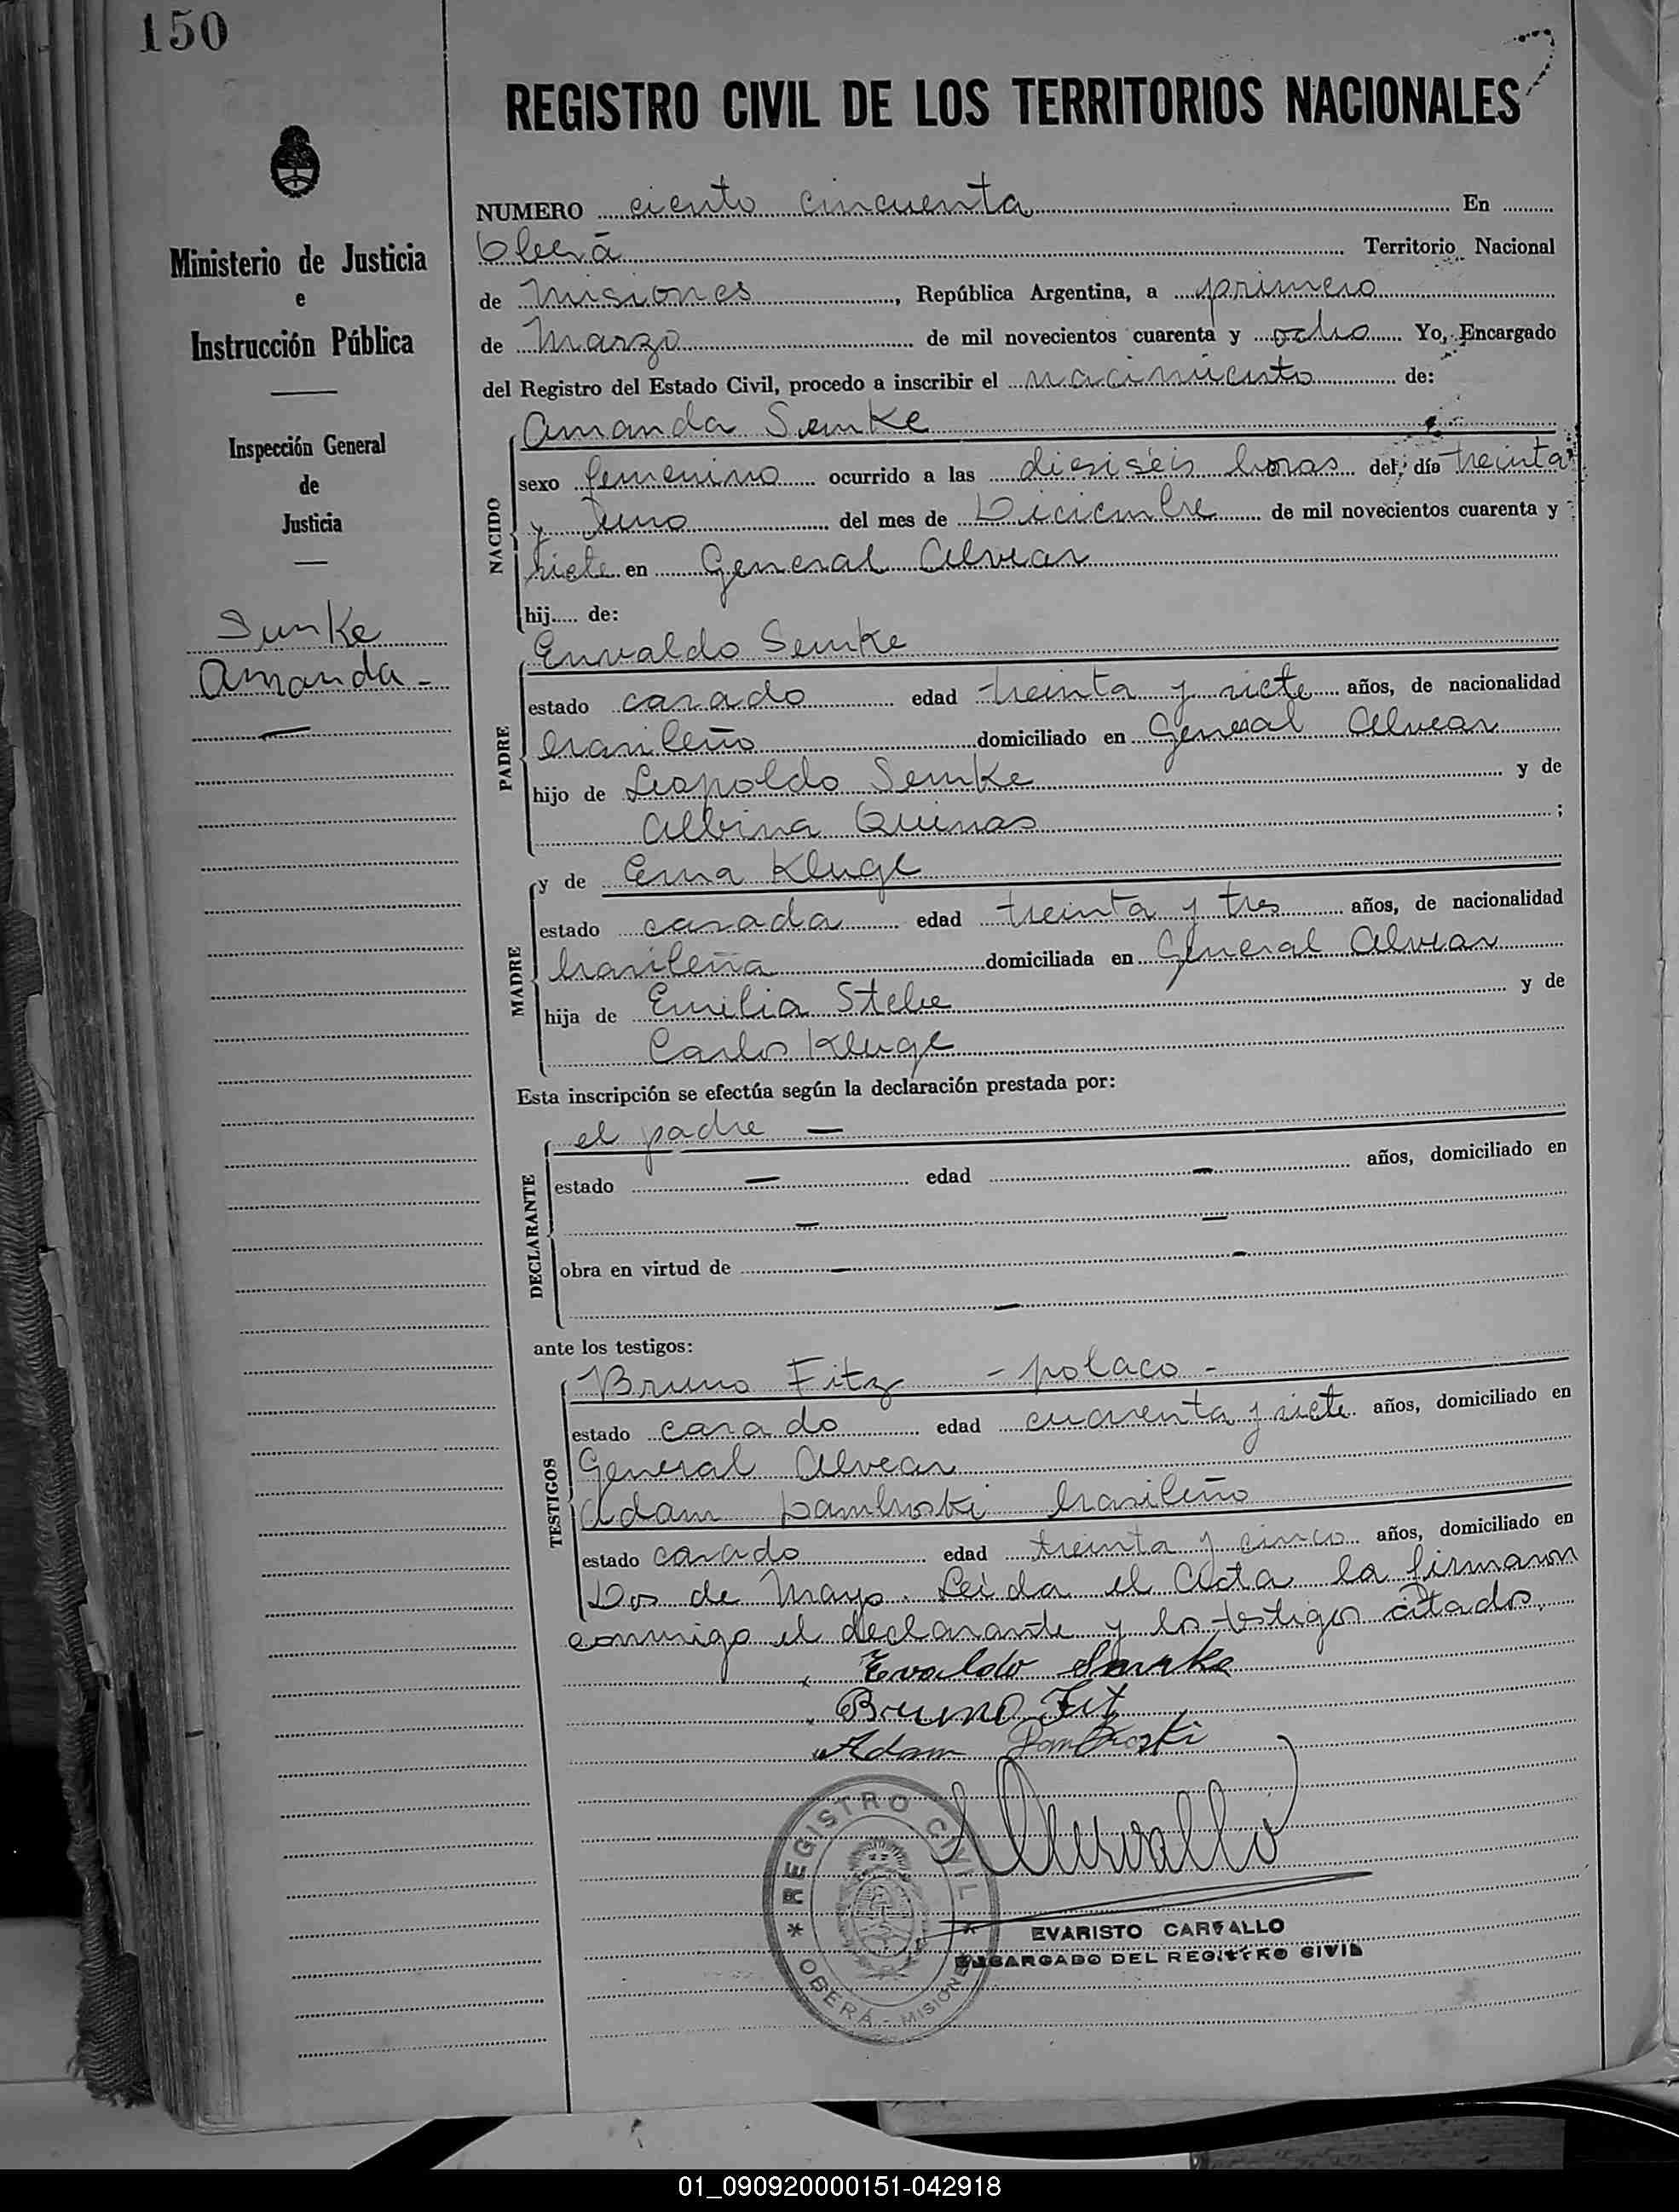 150
REGISTRO CIVIL DE LOS TERRITORIOS NACIONALES
Ministerio de Justicia
e
Instrucción Pública
Inspección General
de
Justicia
Semke
Amanda -
NUMERO ciento cincuenta En
Oberá Territorio Nacional
de Misiones, República Argentina, a primero
de Marzo de mil novecientos cuarenta y ocho Yo, Encargado
del Registro del Estado Civil, procedo a inscribir el nacimiento de:
NACIDO
Amanda Semke
sexo femenino ocurrido a las dieciséis horas del día treinta
y uno del mes de Diciembre de mil novecientos cuarenta y
siete en General Alvear
hij..... de:
PADRE
Envaldo Semke
estado casado edad treinta y siete años, de nacionalidad
brasileño domiciliado en General Alvear
hijo de Leopoldo Semke y de
Albina ;
MADRE
y de Erna Kluge
estado casada edad treinta y tres años, de nacionalidad
brasileña domiciliada en General Alvear
hija de Emilia y de
Carlos Kluge
Esta inscripción se efectúa según la declaración prestada por:
DECLARANTE
el padre —
estado — edad —
años, domiciliado en
— —
obra en virtud de — -
—
ante los testigos:
TESTIGOS
Bruno Fitz - polaco -
estado casado edad cuarenta y siete años, domiciliado en
General Alvear
Adam brasileño
estado casado edad treinta y cinco años, domiciliado en
Dos de Mayo. Leida el Acta la firmaron
conmigo el declarante y los testigos citados.
Evaldo Semke
Bruno Fitz
Adam
REGISTRO CIVIL
* OBERÁ - MISIONES *
EVARISTO CARVALLO
ENCARGADO DEL REGISTRO CIVIL
01_090920000151-042918